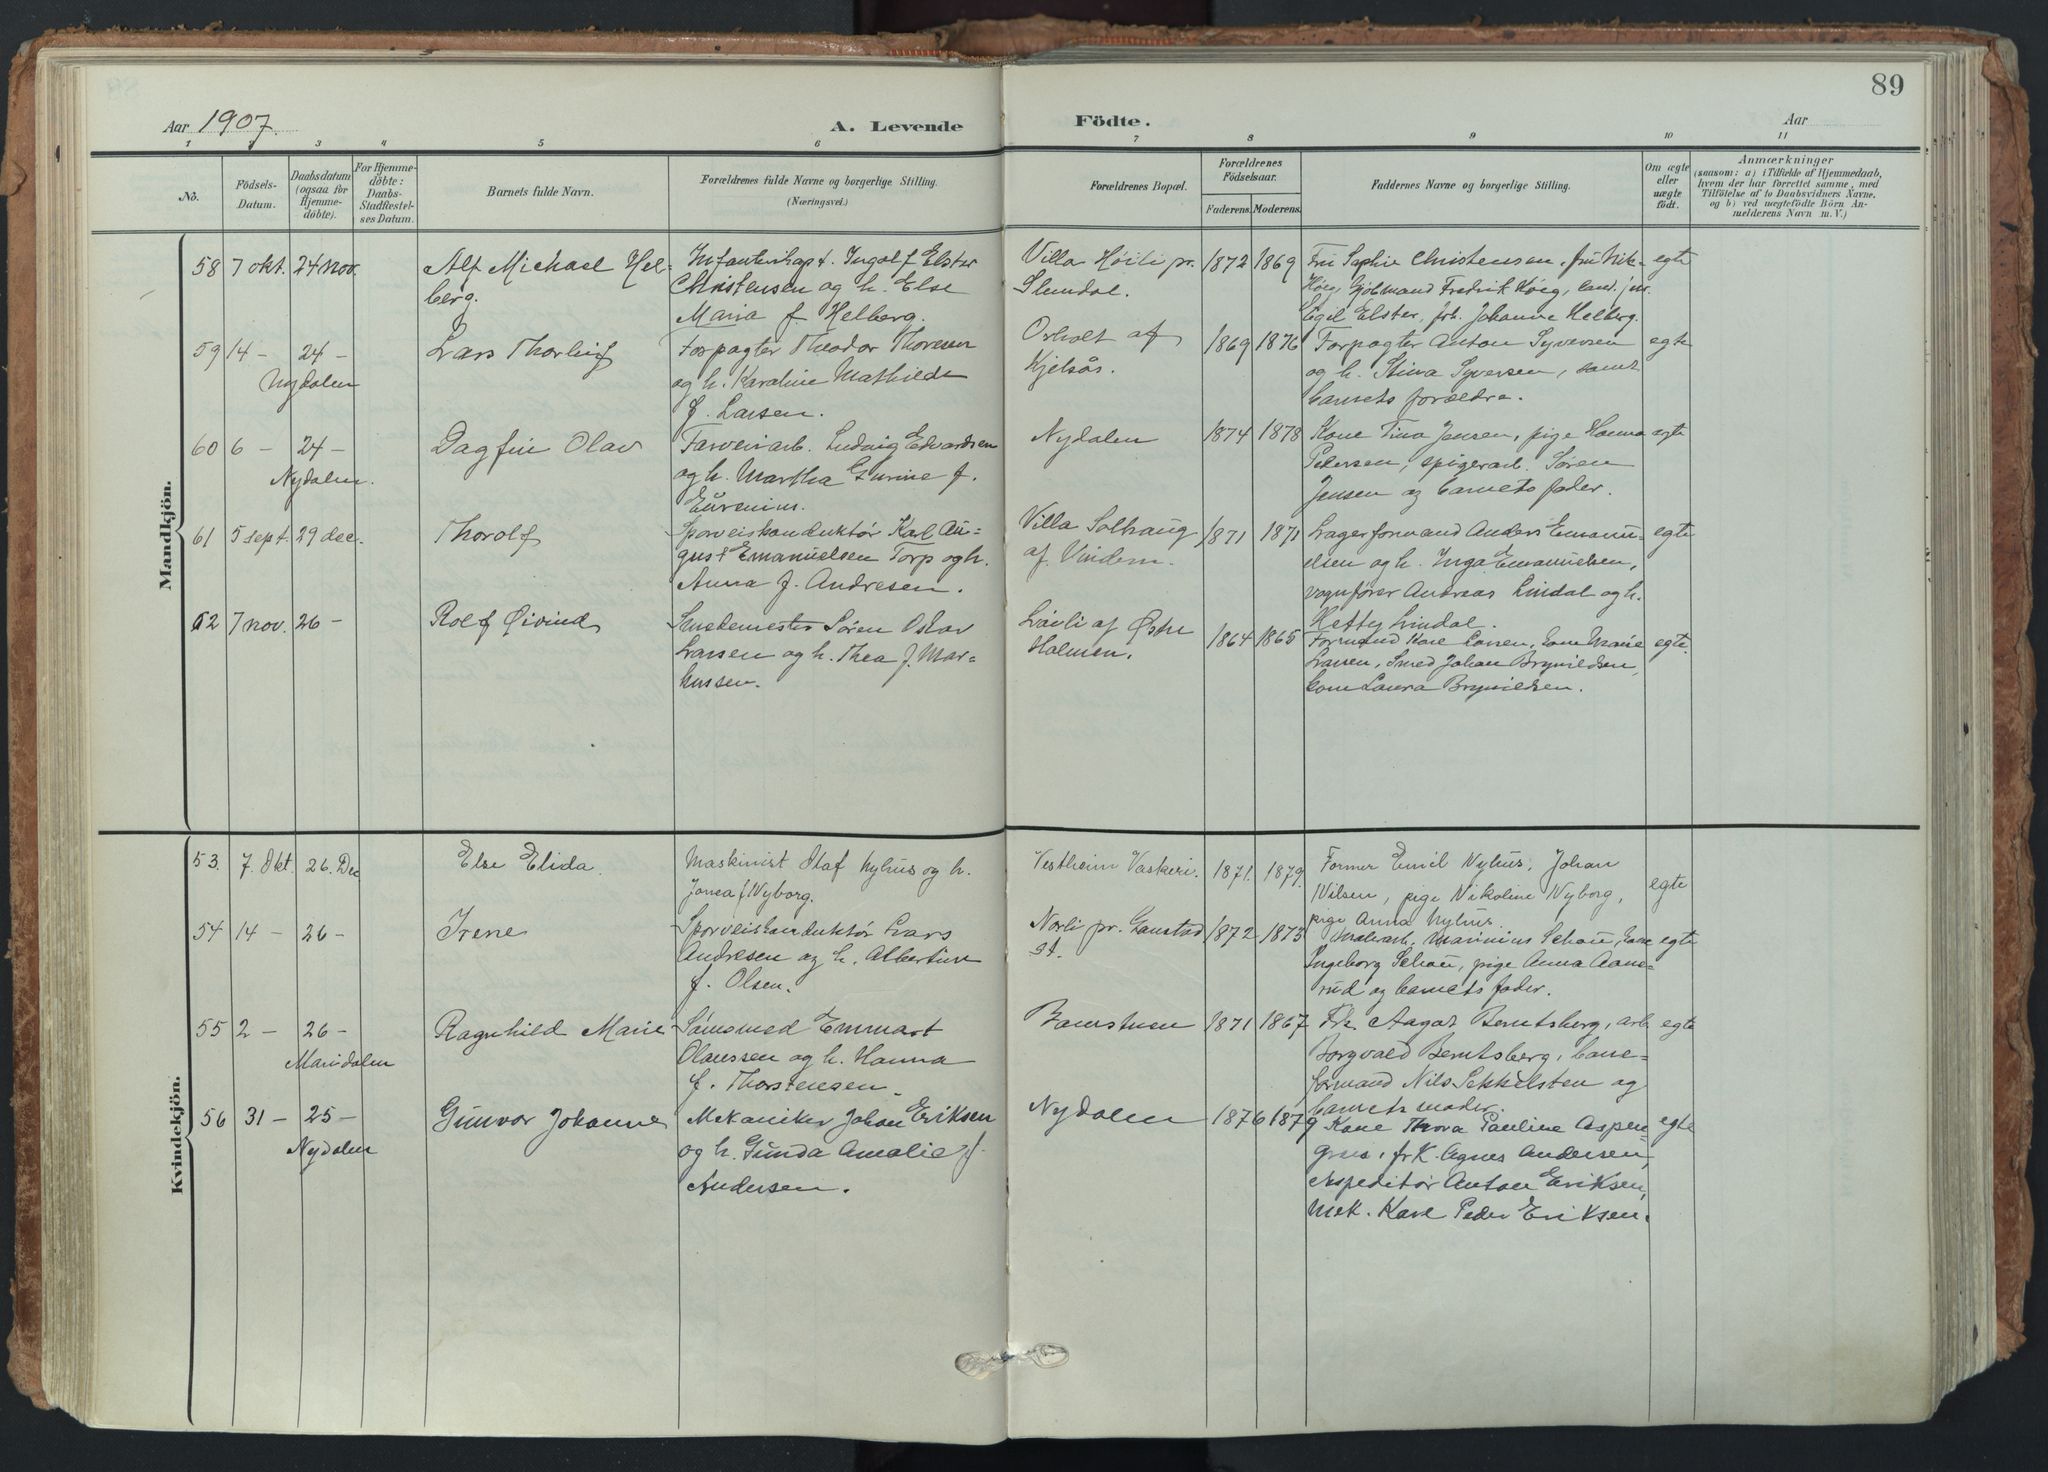 89
Aar 1907.
A. Levende
Födte.
Aar
1 2 3 4 5 6 7 8 9 10 11
No.
Födsels-
Datum.
Daabsdatum
(ogsaa for
Hjemme-
döbte).
For Hjemme-
döbte:
Daabs-
Stadfæstel-
ses Datum.
Barnets fulde Navn.
Forældrenes fulde Navne og borgerlige Stilling.
(Næringsvei.)
Forældrenes Bopæl.
Forældrenes
Födselsaar.
Faderens. Moderens.
Faddernes Navne og borgerlige Stilling.
Om ægte
eller
uægte
födt.
Anmærkninger
(saasom: a) i Tilfælde af Hjemmedaab,
hvem der har forrettet samme, med
Tilföielse af to Daabsvidners Navne.
og b) ved uægtefödte Börn An-
melderens Navn m. V.)
Mandkjön.
58 7 okt. 24 nov.
Alf Michael Hel-
berg.
Infanterikapt. Ingolf Elster
Christensen og h. Else
Maria f. Helberg.
Villa Höili pr.
Slemdal.
1872 1869
Fru Sophie Christensen, fru
Höeg, Fredrik Höeg, cand. jur.
Egil Elster, frk. Johanne Helberg.
egte
59 14 - 24 -
Nydalen
Lars Thorleif
Forpagter Theodor Thoresen
og h. Karoline Mathilde
f. Larsen.
af
Kjelsås.
1869 1876
Forpagter Anton Syversen
og h. Stina Syversen, samt
barnets forældre.
egte
60 6 - 24 -
Nydalen.
Dagfin Olav
Farveriarb. Ludvig Edvardsen
og h. Martha Gurine f.
Nydalen
1874 1878
Kone Tina Jensen, pige Hanna
Pedersen, spigerarb. Sören
Jensen og barnets fader.
egte
61 5 sept. 29 dec.
Thorolf
Sporveiskonduktör Karl Au-
gust Emanuelsen Torp og h.
Anna f. Andresen.
Villa Solhaug
af Vindern.
1871 1871
Lagerformand Anders Emanu-
elsen og h. Inga Emanuelsen,
vognförer Andreas Lindal og h.
Hetty Lindal.
egte
62 7 nov. 26 -
Rolf Øivind
Smedemester Sören Oskar
Larsen og h. Thea f. Mar-
kussen.
Lövli af Østre
Holmen.
1864 1865
Formand Kare Larsen, kone Marie
Larsen, Smed Johan Brynildsen,
kone Laura Brynildsen.
egte.
Kvindekjön.
53. 7. Okt. 26. Dec
Else Elida.
Maskinist Olaf Nyhus og h.
Jonea f. Nyborg.
Vestheim Vaskeri.
1871. 1879.
Former Emil Nyhus, Johan
Nilsen, pige Nikoline Nyborg,
pige Anna Nyhus.
egte
54 14 - 26 -
Irene
Sporveiskonduktör Lars
Andresen og h. Albertine
f. Olsen.
Norli pr. Gaustad
st.
1872 1873
Malerarb. Marinius Schou, kone
Ingeborg Schou, pige Anna Aane-
rud og barnets fader.
egte
55 2 - 26 -
Maridalen
Ragnhild Marie
Emmart
Olaussen og h. Hanna
f. Thorstensen.
1871 1867
Frk. Aagot Berntsberg, arb.
Torgvald Berntsberg, bane-
formand Nils og
barnets moder.
egte
56 31 - 25 -
Nydalen
Gunvor Johanne
Mekaniker Johan Eriksen
og h. Gunda Amalie f.
Andersen.
Nydalen
1876 1879
Kone Thora Pauline Aspen-
græs, frk. Agnes Andersen,
expeditör Anton Eriksen,
mek. Kare Peder Eriksen.
egte